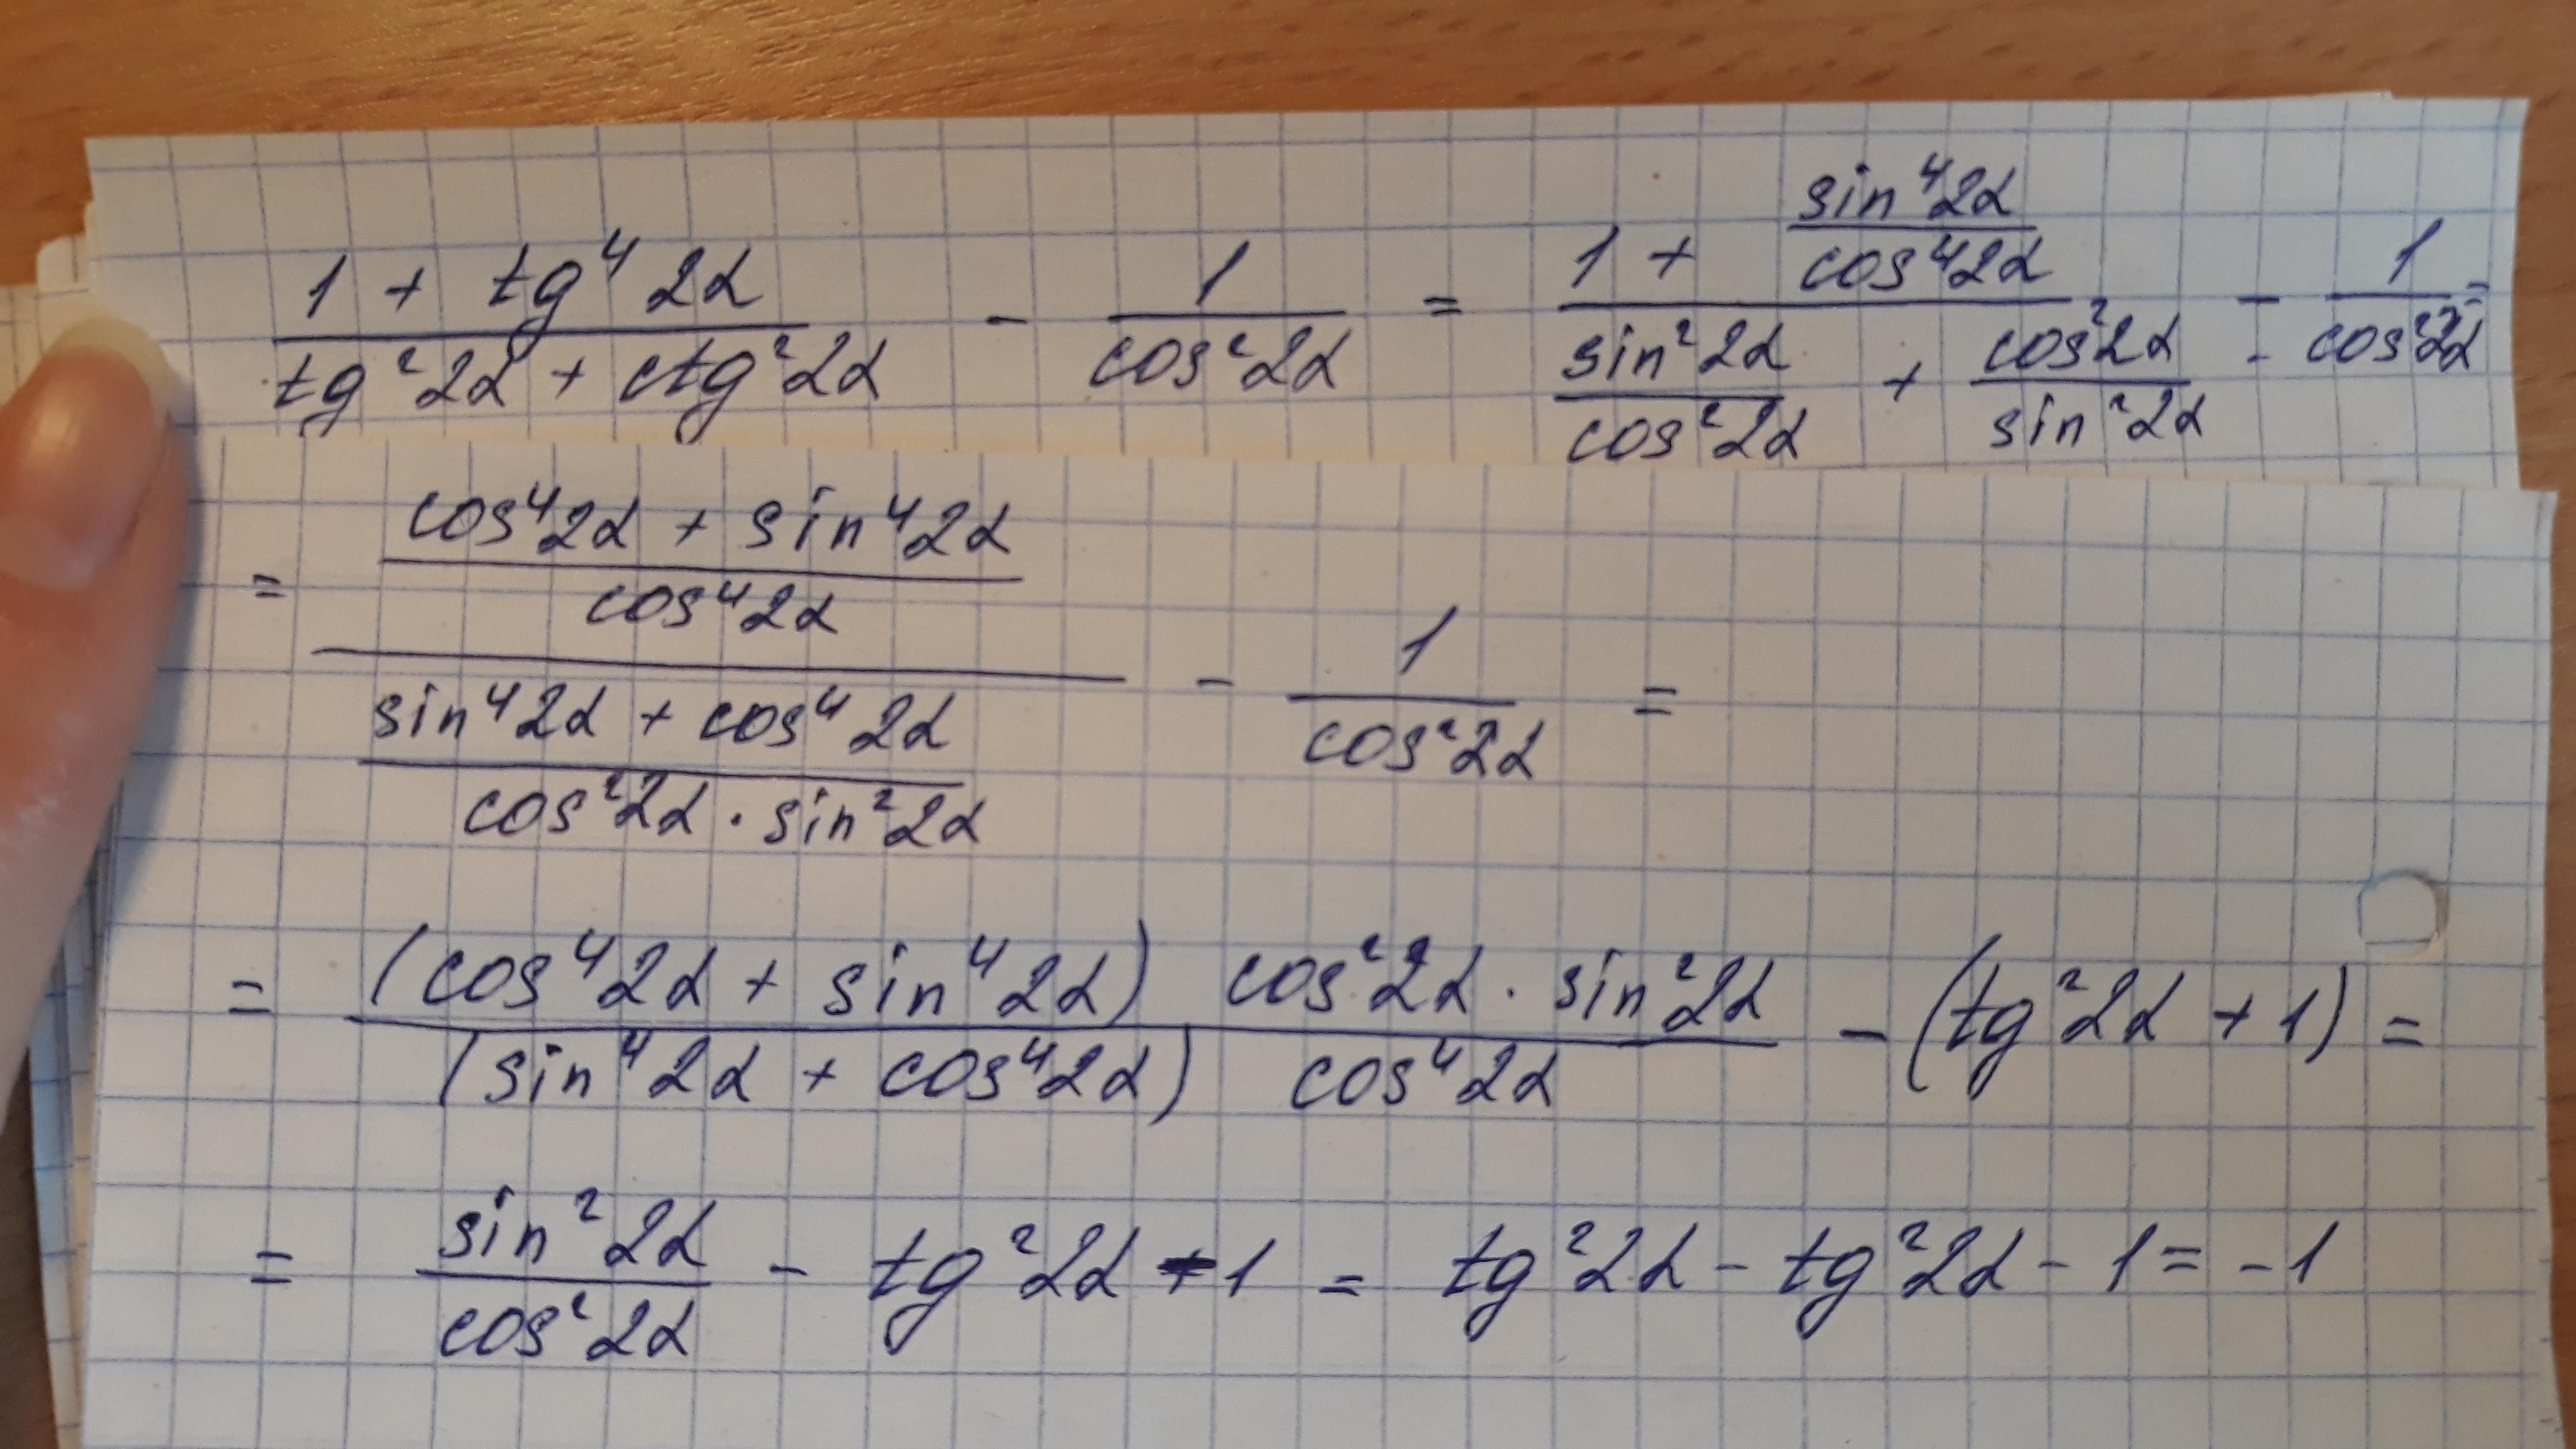 (1 + tg⁴ 2α)/(tg² 2α + ctg² 2α) - 1/(cos² 2α) = (1 + (sin⁴ 2α)/(cos⁴ 2α))/((sin² 2α)/(cos² 2α) + (cos² 2α)/(sin² 2α)) - 1/(cos² 2α) =
= ((cos⁴ 2α + sin⁴ 2α)/(cos⁴ 2α))/((sin⁴ 2α + cos⁴ 2α)/(cos² 2α · sin² 2α)) - 1/(cos² 2α) =
= ((cos⁴ 2α + sin⁴ 2α) cos² 2α · sin² 2α)/((sin⁴ 2α + cos⁴ 2α) cos⁴ 2α) - (tg² 2α + 1) =
= (sin² 2α)/(cos² 2α) - tg² 2α - 1 = tg² 2α - tg² 2α - 1 = -1